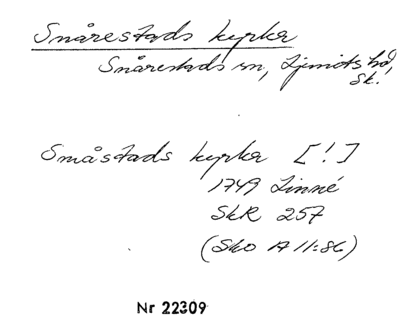 Snårestads kyrka
Snårestads sn, Ljunits hd,
Sk.
Småstads kyrka [!]
1749 Linné
SkR 257
(SkO A 11:86)
Nr 22309